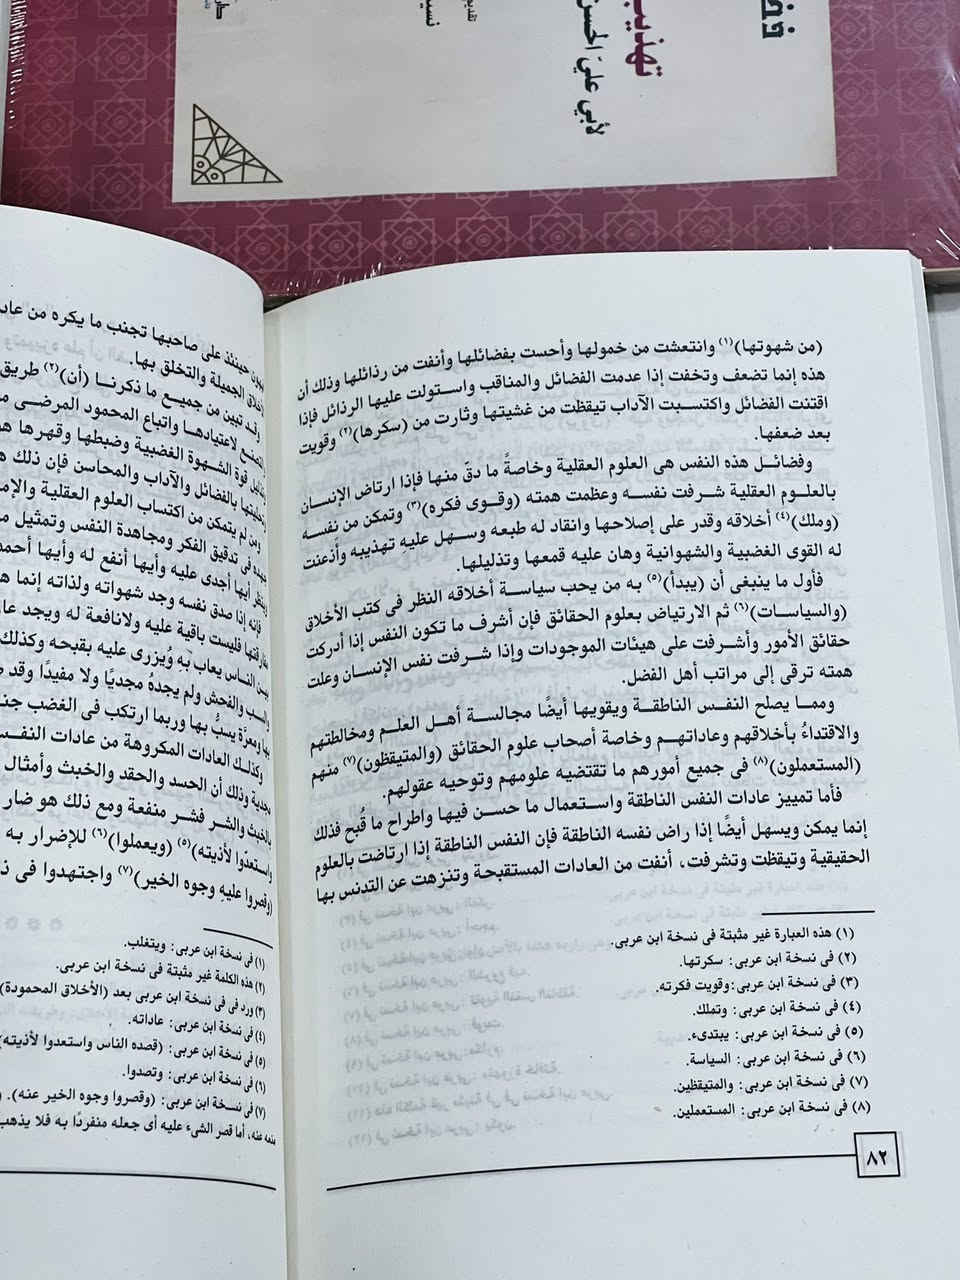 تهذيب
لأبي علي الحسن
(من شهوتها)(١) وانتعشت من خمولها وأحست بفضائلها وأنفت من رذائلها وذلك أن
هذه إنما تضعف وتخفت إذا عدمت الفضائل والمناقب واستولت عليها الرذائل فإذا
اقتنت الفضائل واكتسبت الآداب تيقظت من غشيتها وثارت من (سكرها)(٢) وقويت
بعد ضعفها.
وفضائل هذه النفس هى العلوم العقلية وخاصةً ما دقّ منها فإذا ارتاض الإنسان
بالعلوم العقلية شرفت نفسه وعظمت همته (وقوى فكره)(٣) وتمكن من نفسه
(وملك)(٤) أخلاقه وقدر على إصلاحها وانقاد له طبعه وسهل عليهِ تهذيبه وأذعنت
له القوى الغضبية والشهوانية وهان عليه قمعها وتذليلها.
فأول ما ينبغى أن (يبدأ)(٥) به من يحب سياسة أخلاقه النظر فى كتب الأخلاق
(والسياسات)(٦) ثم الارتياض بعلوم الحقائق فإن أشرف ما تكون النفس إذا أدركت
حقائق الأمور وأشرفت على هيئات الموجودات وإذا شرفت نفس الإنسان وعلت
همته ترقى إلى مراتب أهل الفضل.
ومما يصلح النفس الناطقة ويقويها أيضًا مجالسة أهل العلم ومخالطتهم
والاقتداءُ بأخلاقهم وعاداتهم وخاصة أصحاب علوم الحقائق (والمتيقظون)(٧) منهم
(المستعملون)(٨) فى جميع أمورهم ما تقتضيه علومهم وتوحيه عقولهم.
فأما تمييز عادات النفس الناطقة واستعمال ما حسن فيها واطراح ما قُبح فذلك
إنما يمكن ويسهل أيضًا إذا راض نفسه الناطقة فإن النفس الناطقة إذا ارتاضت بالعلوم
الحقيقية وتيقظت وتشرفت، أنفت من العادات المستقبحة وتنزهت عن التدنس بها
(١) هذه العبارة غير مثبتة فى نسخة ابن عربى.
(٢) فى نسخة ابن عربى: سكرتها.
(٣) فى نسخة ابن عربى: وقويت فكرته.
(٤) فى نسخة ابن عربى: وتملك.
(٥) فى نسخة ابن عربى: يبتدىء.
(٦) فى نسخة ابن عربى: السياسة.
(٧) فى نسخة ابن عربى: والمتيقظين.
(٨) فى نسخة ابن عربى: المستعملين.
٨٢
حينئذ على صاحبها تجنب ما يكره من
الجميلة والتخلق بها.
وقد تبين من جميع ما ذكرنا (أن)(٢) طريق
لاعتيادها واتباع المحمود المرضى
قوة الشهوة الغضبية وضبطها وقهرها
بالفضائل والآداب والمحاسن فإن ذلك
ومن لم يتمكن من اكتساب العلوم العقلية
فى تدقيق الفكر ومجاهدة النفس وتمثيل
أيها أجدى عليه وأيها أنفع له وأيها
فإنه إذا صدق نفسه وجد شهواته ولذاته إنما
فليست باقية عليه ولانافعة له ويجد
الناس يعاب به ويُزرى عليه بقبحه وكذلك
والفحش ولم يجدهُ مجديًا ولا مفيدًا وقد
ومعرَّة يسبُّ بها وربما ارتكب فى الغضب
وكذلك العادات المكروهة من عادات النفس
وذلك أن الحسد والحقد والخبث وأمثال
والشر فشر منفعة ومع ذلك هو ضار
واستعدّوا لأذيته)(٥) (ويعملوا)(٦) للإضرار به
(وقصروا عليهِ وجوه الخير)(٧) واجتهدوا فى
(١) فى نسخة ابن عربى: ويتغلب.
(٢) هذه الكلمة غير مثبتة فى نسخة ابن عربى.
(٣) ورد فى نسخة ابن عربى بعد (الأخلاق المحمودة)
(٤) فى نسخة ابن عربى: عاداته.
(٥) فى نسخة ابن عربى: (قصده الناس واستعدوا لأذيته)
(٦) فى نسخة ابن عربى: وتصدوا.
(٧) فى نسخة ابن عربى: (وقصروا وجوه الخير عنه).
منعه عنه، أما قصر الشىء عليه أى جعله منفردًا به فلا